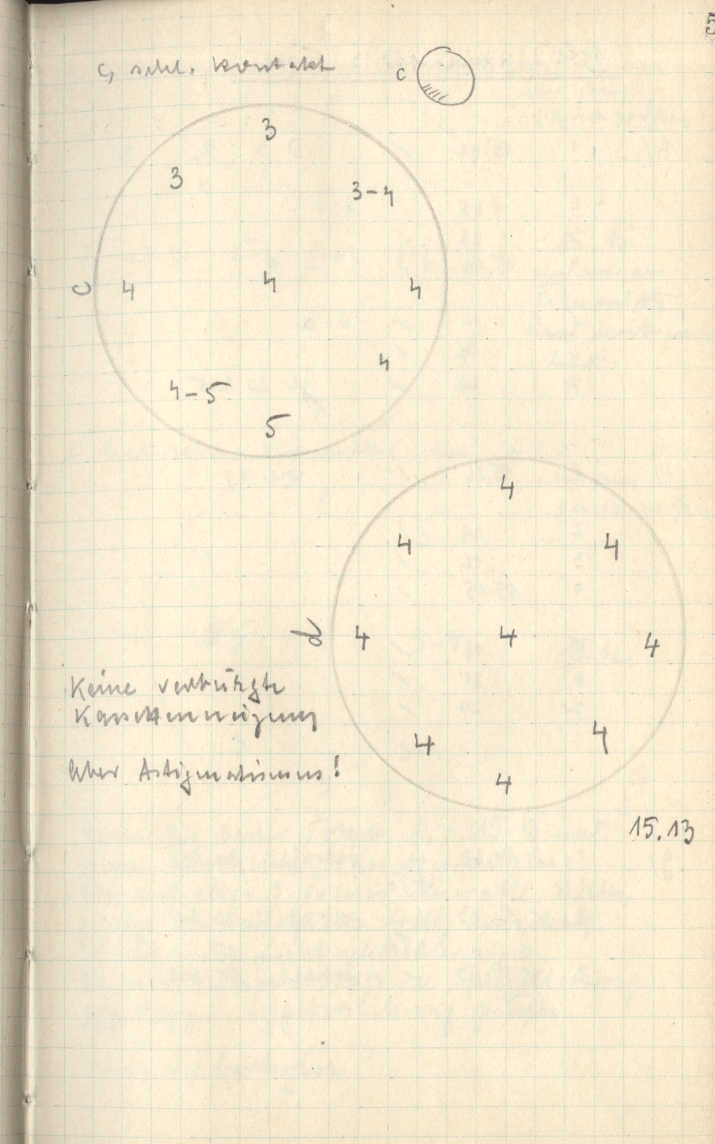 5
c, schl. Kontakt
c
3
3
3-4
c 4 4 4
4
4-5
5
4
4 4
d 4 4 4
Keine verbürgte
Kassettenneigung
4 4
4
Aber Astigmatismus!
15.13